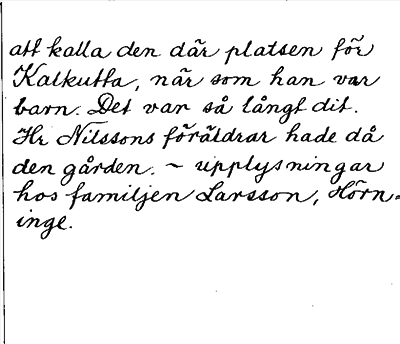 att kalla den där platsen för
Kalkutta, när som han var
barn. Det var så långt dit.
Hr Nilssons föräldrar hade då
den gården. ~ upplysningar
hos familjen Larsson, Hörn=
inge.